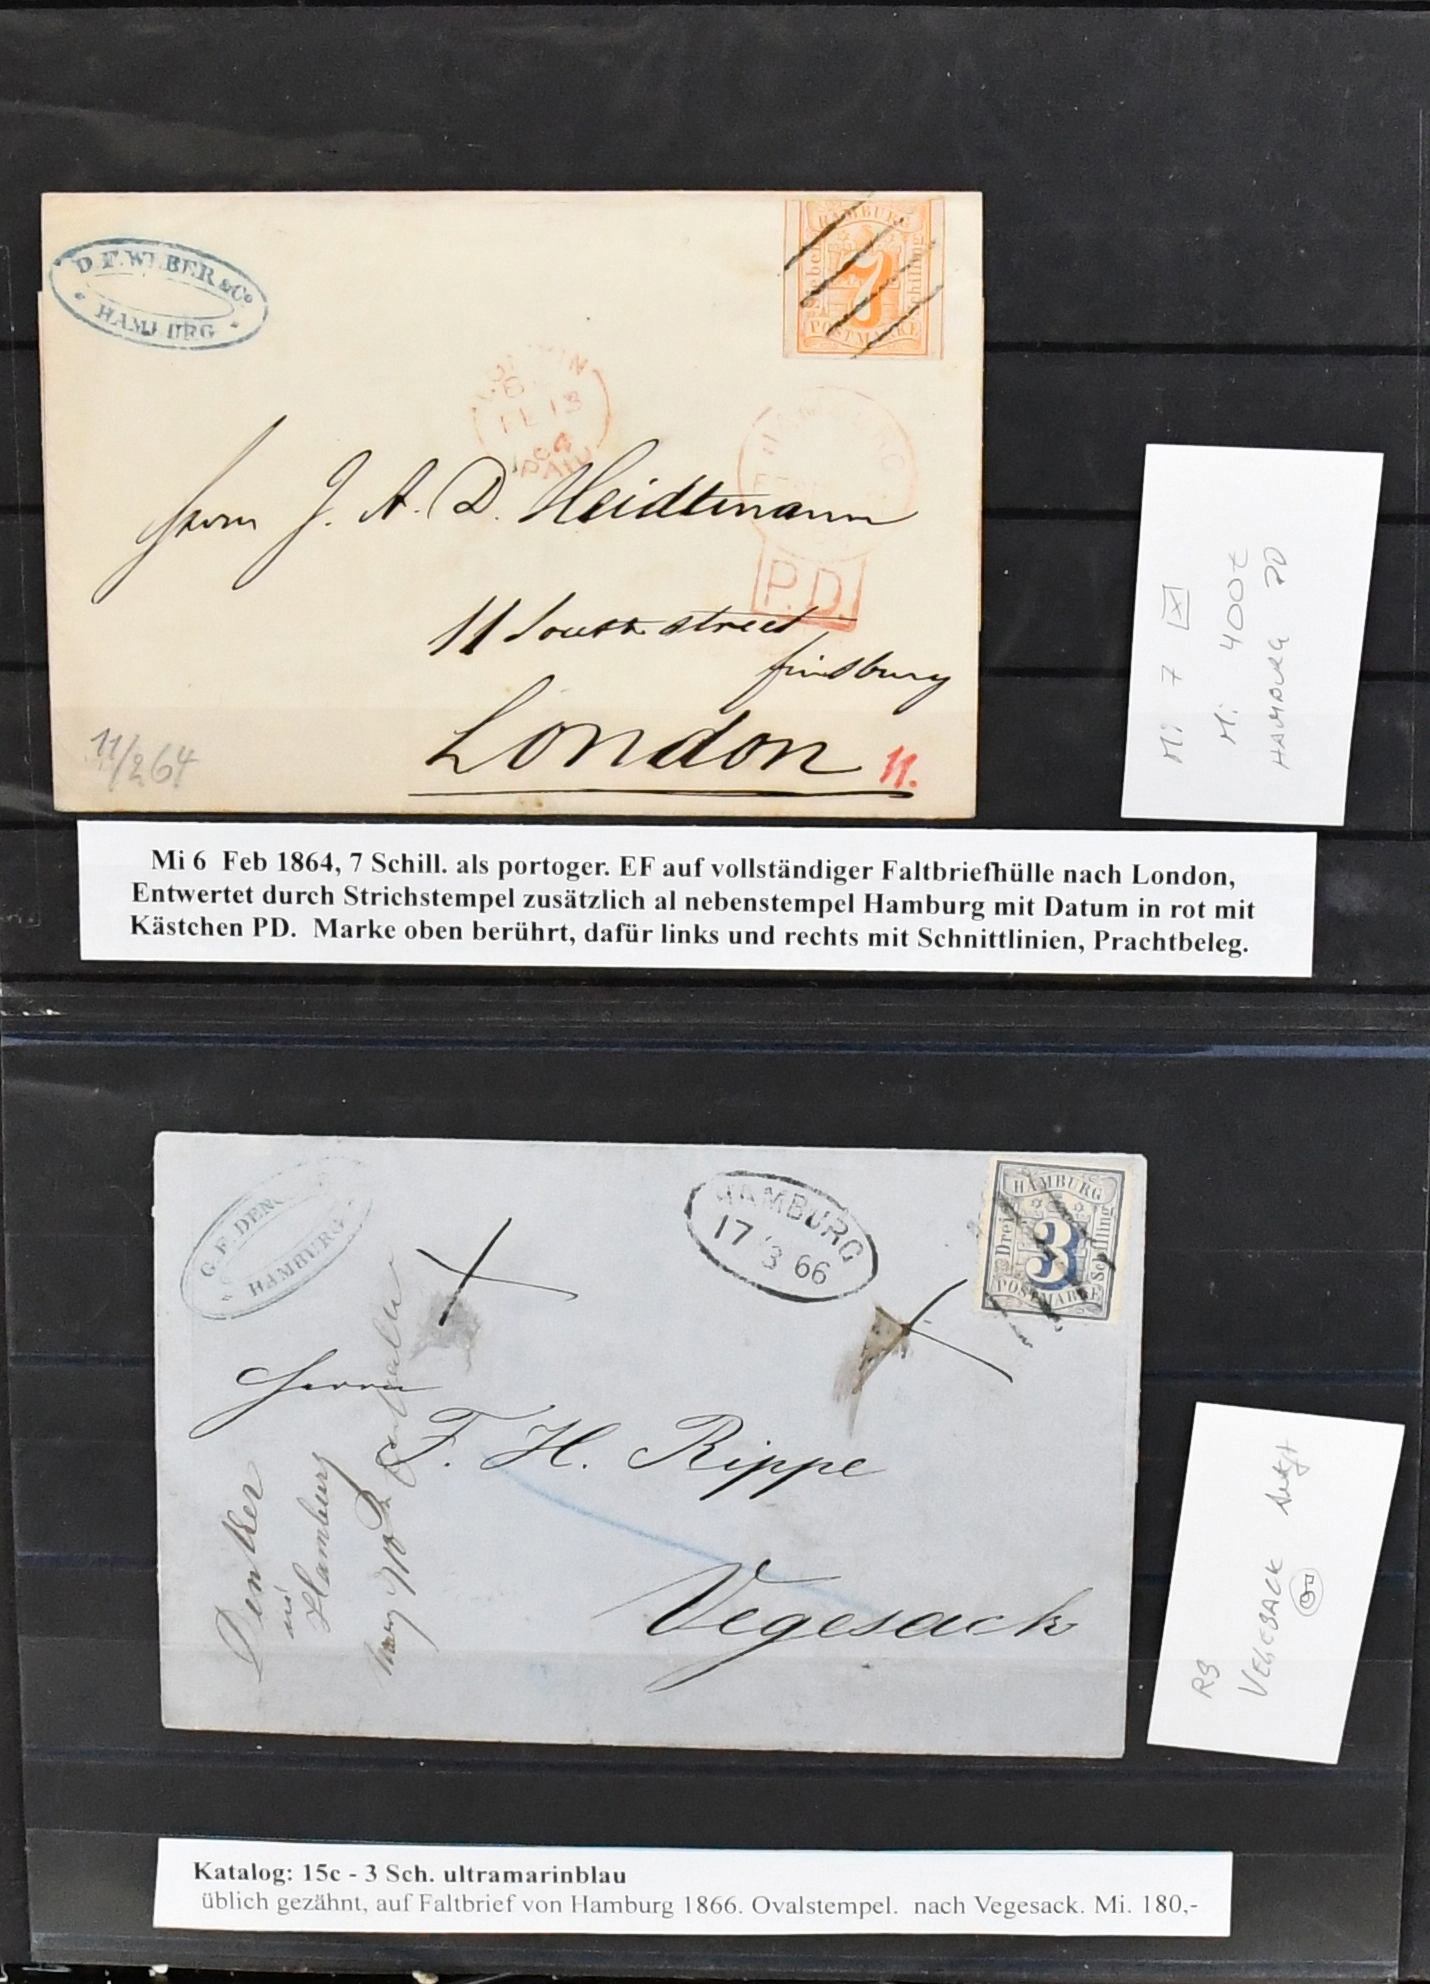 D. F. WEBER & Co
HAMBURG
HAMBURG
Schilling
7
POSTMARKE
FE 13
64
PAID
HAMBURG
P.D.
Herrn J. A. D. Heidtmann
11 South street
finsbury
London 11.
11/2 64
Mi 7
Mi 400€
HAMBURG PD
Mi 6 Feb 1864, 7 Schill. als portoger. EF auf vollständiger Faltbriefhülle nach London,
Entwertet durch Strichstempel zusätzlich al nebenstempel Hamburg mit Datum in rot mit
Kästchen PD. Marke oben berührt, dafür links und rechts mit Schnittlinien, Prachtbeleg.
G. F. DEN
HAMBURG
HAMBURG
17 3 66
HAMBURG
Drei
3
Schilling
POSTMARKE
Herrn
F. H. Rippe
Vegesack
Denker
Hamburg
RS
VEGESACK
Katalog: 15c - 3 Sch. ultramarinblau
üblich gezähnt, auf Faltbrief von Hamburg 1866. Ovalstempel. nach Vegesack. Mi. 180,-